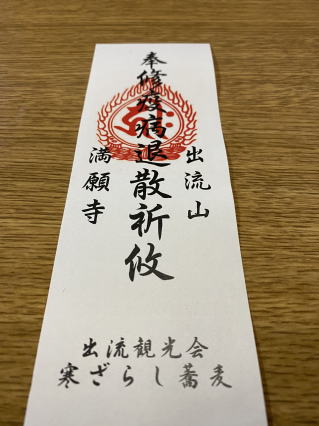 奉修疫病退散祈攸
出流山
満願寺
出流観光会
寒ざらし蕎麦